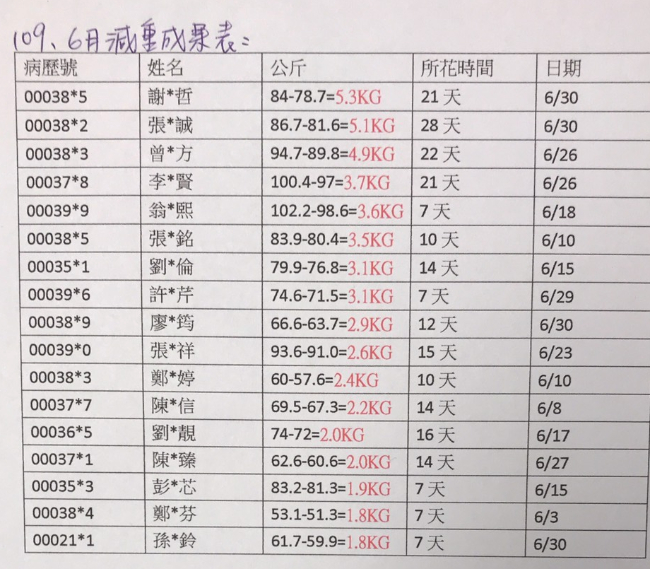 109、6月減重成果表：
病歷號 姓名 公斤 所花時間 日期
00038*5 謝*哲 84-78.7=5.3KG 21 天 6/30
00038*2 張*誠 86.7-81.6=5.1KG 28 天 6/30
00038*3 曾*方 94.7-89.8=4.9KG 22 天 6/26
00037*8 李*賢 100.4-97=3.7KG 21 天 6/26
00039*9 翁*熙 102.2-98.6=3.6KG 7 天 6/18
00038*5 張*銘 83.9-80.4=3.5KG 10 天 6/10
00035*1 劉*倫 79.9-76.8=3.1KG 14 天 6/15
00039*6 許*芹 74.6-71.5=3.1KG 7 天 6/29
00038*9 廖*筠 66.6-63.7=2.9KG 12 天 6/30
00039*0 張*祥 93.6-91.0=2.6KG 15 天 6/23
00038*3 鄭*婷 60-57.6=2.4KG 10 天 6/10
00037*7 陳*信 69.5-67.3=2.2KG 14 天 6/8
00036*5 劉*靚 74-72=2.0KG 16 天 6/17
00037*1 陳*臻 62.6-60.6=2.0KG 14 天 6/27
00035*3 彭*芯 83.2-81.3=1.9KG 7 天 6/15
00038*4 鄭*芬 53.1-51.3=1.8KG 7 天 6/3
00021*1 孫*鈴 61.7-59.9=1.8KG 7 天 6/30